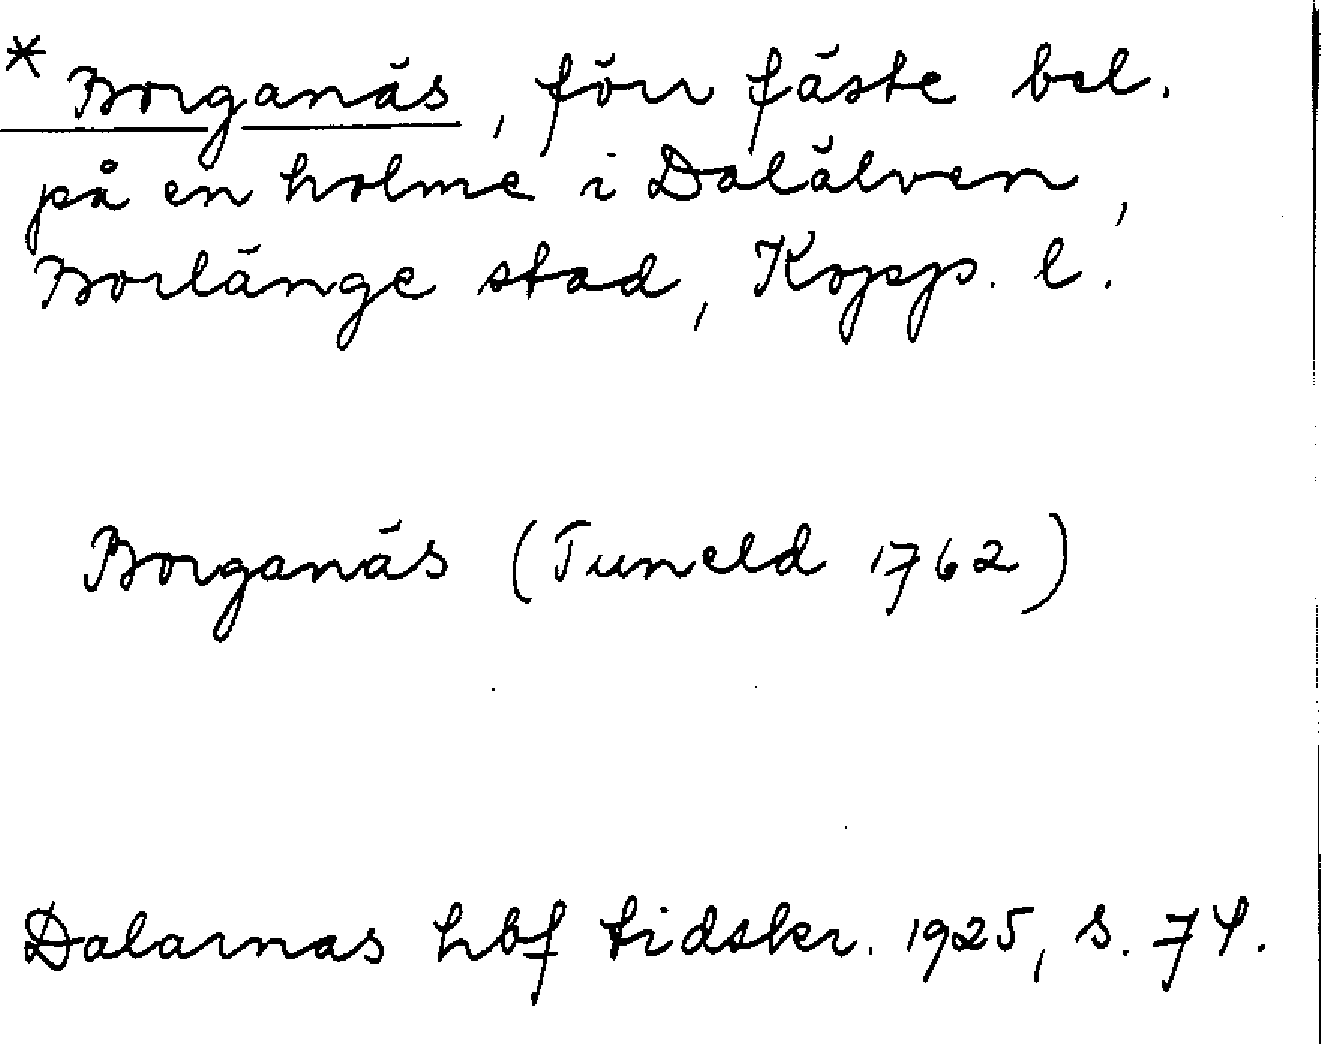 * Borganäs, förr fäste bel.
på en holme i Dalälven,
Borlänge stad, Kopp. l.
Borganäs (Tuneld 1762)
Dalarnas hbf tidskr. 1925, s. 74.